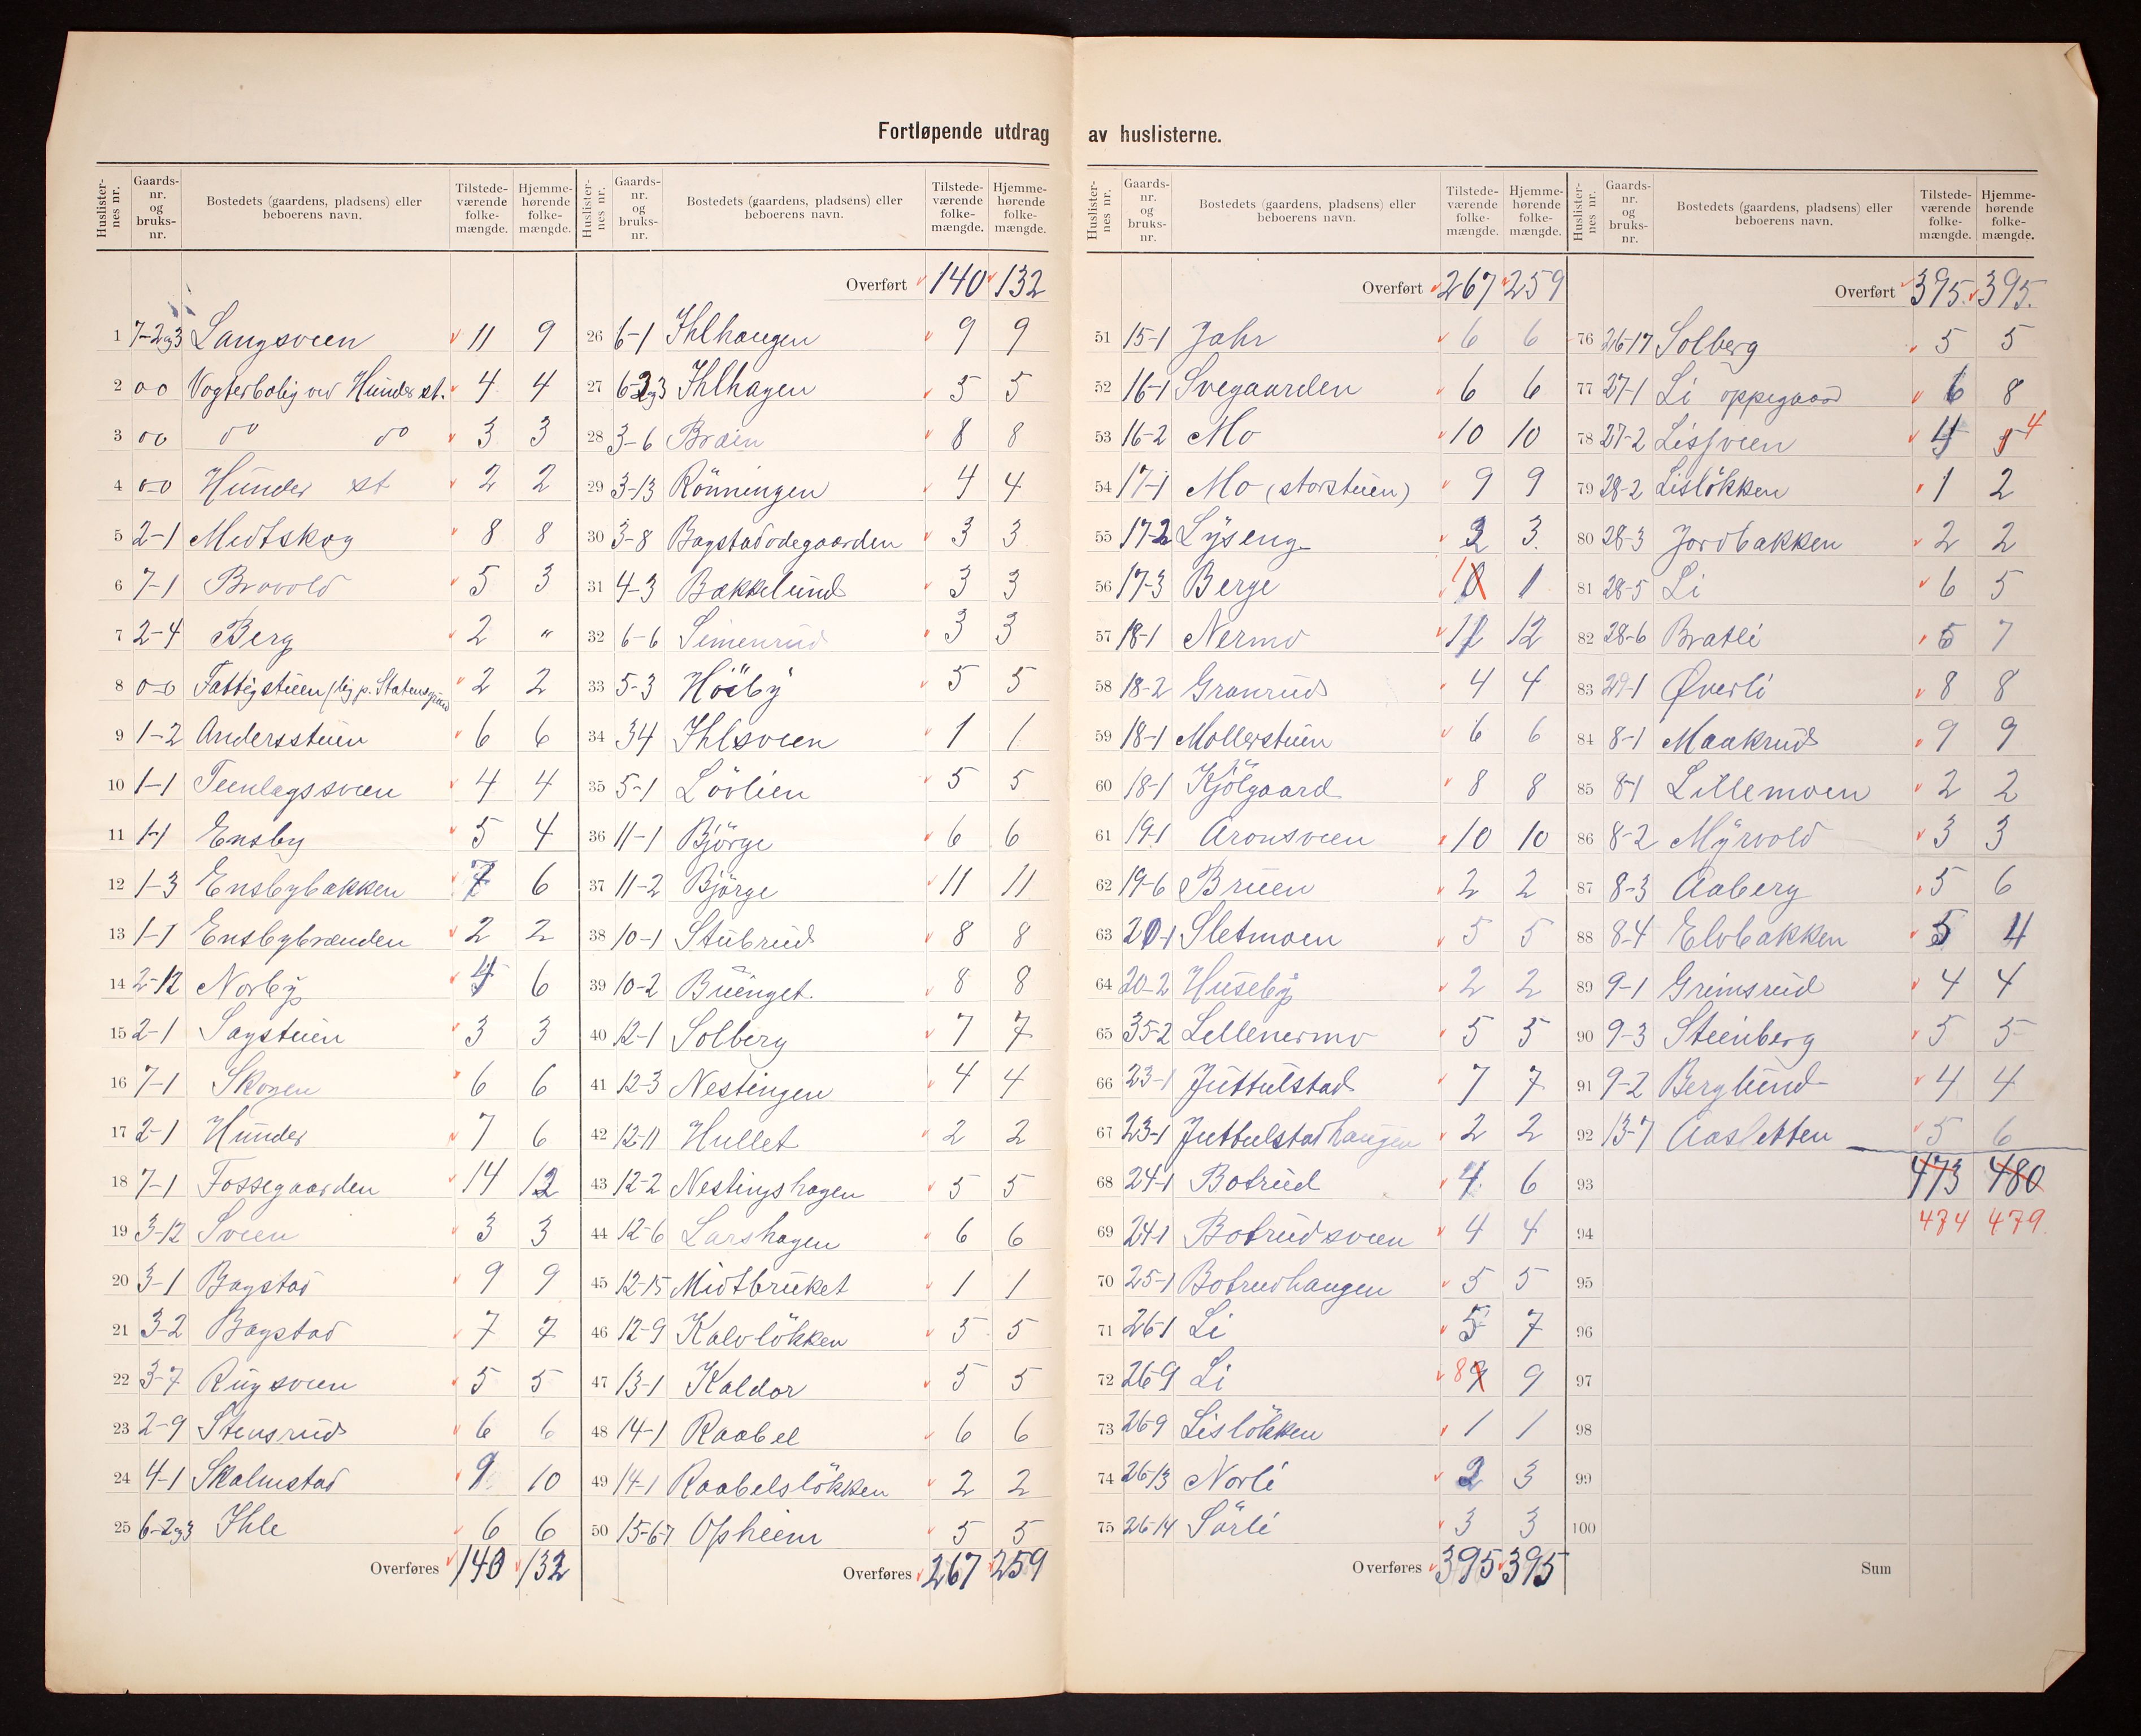 Fortløpende utdrag av huslisterne.
Huslister-nes nr. | Gaards-nr. og bruks-nr. | Bostedets (gaardens, pladsens) eller beboerens navn. | Tilstede-værende folke-mængde. | Hjemme-hørende folke-mængde.
1 7-2og3 Langsveen 11 9
2 0-0 Vogterbolig ved Hunder st. 4 4
3 00 do do 3 3
4 0-0 Hunder st 2 2
5 2-1 Midtskog 8 8
6 7-1 Brovold 5 3
7 2-4 Berg 2 "
8 0-0 Fattigstuen (lig p. Statens grund 2 2
9 1-2 Andersstuen 6 6
10 1-1 Teenlagssveen 4 4
11 1-1 Ensby 5 4
12 1-3 Ensbybakken 7 6
13 1-1 Ensbybrænden 2 2
14 2-12 Norby 4 6
15 2-1 Sagstuen 3 3
16 7-1 Skogen 6 6
17 2-1 Hunder 7 6
18 7-1 Fossegaarden 14 12
19 3-12 Sveen 3 3
20 3-1 Bagstad 9 9
21 3-2 Bagstad 7 7
22 3-7 Rugsveen 5 5
23 2-9 Stensrud 6 6
24 4-1 Skalmstad 9 10
25 6-2og3 Ihle 6 6
Overføres 140 132
Huslister-nes nr. | Gaards-nr. og bruks-nr. | Bostedets (gaardens, pladsens) eller beboerens navn. | Tilstede-værende folke-mængde. | Hjemme-hørende folke-mængde.
Overført 140 132
26 6-1 Ihlhaugen 9 9
27 6-2og3 Ihlhagen 5 5
28 3-6 Braein 8 8
29 3-13 Rönningen 4 4
30 3-8 Bagstadødegaarden 3 3
31 4-3 Bakkelund 3 3
32 6-6 Simenrud 3 3
33 5-3 Höiby 5 5
34 34 Ihlsveen 1 1
35 5-1 Lövlien 5 5
36 11-1 Björge 6 6
37 11-2 Björge 11 11
38 10-1 Stubrud 8 8
39 10-2 Buenget. 8 8
40 12-1 Solberg 7 7
41 12-3 Nestingen 4 4
42 12-11 Hullet 2 2
43 12-2 Nestingshagen 5 5
44 12-6 Larshagen 6 6
45 12-15 Midtbruket 1 1
46 12-9 Kalvlökken 5 5
47 13-1 Kaldor 5 5
48 14-1 Raabel 6 6
49 14-1 Raabelslökken 2 2
50 15-6-7 Opheim 5 5
Overføres 267 259
Huslister-nes nr. | Gaards-nr. og bruks-nr. | Bostedets (gaardens, pladsens) eller beboerens navn. | Tilstede-værende folke-mængde. | Hjemme-hørende folke-mængde.
Overført 267 259
51 15-1 Jahr 6 6
52 16-1 Svegaarden 6 6
53 16-2 Mo 10 10
54 17-1 Mo (storstuen) 9 9
55 17-2 Lyseng 2 3.
56 17-3 Berge 1 0 1
57 18-1 Nermo 11 12
58 18-2 Granrud 4 4
59 18-1 Mollerstuen 6 6
60 18-1 Kjölgaard 8 8
61 19-1 Aronsveen 10 10
62 19-6 Bruen 2 2
63 20-1 Sletmoen 5 5
64 20-2 Huseby 2 2
65 35-2 Lellenermo 5 5
66 23-1 Juttulstad 7 7
67 23-1 Juttulstadhaugen 2 2
68 24-1 Botrud 4 6
69 24-1 Botrudsveen 4 4
70 25-1 Botrudhaugen 5 5
71 26-1 Li 5 7
72 26-9 Li 8 9 9
73 26-9 Lislökken 1 1
74 26-13 Norli 2 3
75 26-14 Sörli 3 3
Overføres 395 395
Huslister-nes nr. | Gaards-nr. og bruks-nr. | Bostedets (gaardens, pladsens) eller beboerens navn. | Tilstede-værende folke-mængde. | Hjemme-hørende folke-mængde.
Overført 395. 395.
76 26-17 Solberg 5 5
77 27-1 Li oppegaard 6 8
78 27-2 Lissveen 4 5 4
79 28-2 Lislökken 1 2
80 28-3 Jordbakken 2 2
81 28-5 Li 6 5
82 28-6 Bratli 5 7
83 29-1 Øverli 8 8
84 8-1 Maakrud 9 9
85 8-1 Lillemoen 2 2
86 8-2 Myrvold 3 3
87 8-3 Aaberg 5 6
88 8-4 Elvbakken 5 4
89 9-1 Grimsrud 4 4
90 9-3 Steinberg 5 5
91 9-2 Berglund 4 4
92 13-7 Aasletten 5 6
93 473 480
94 474 479.
95
96
97
98
99
100
Sum